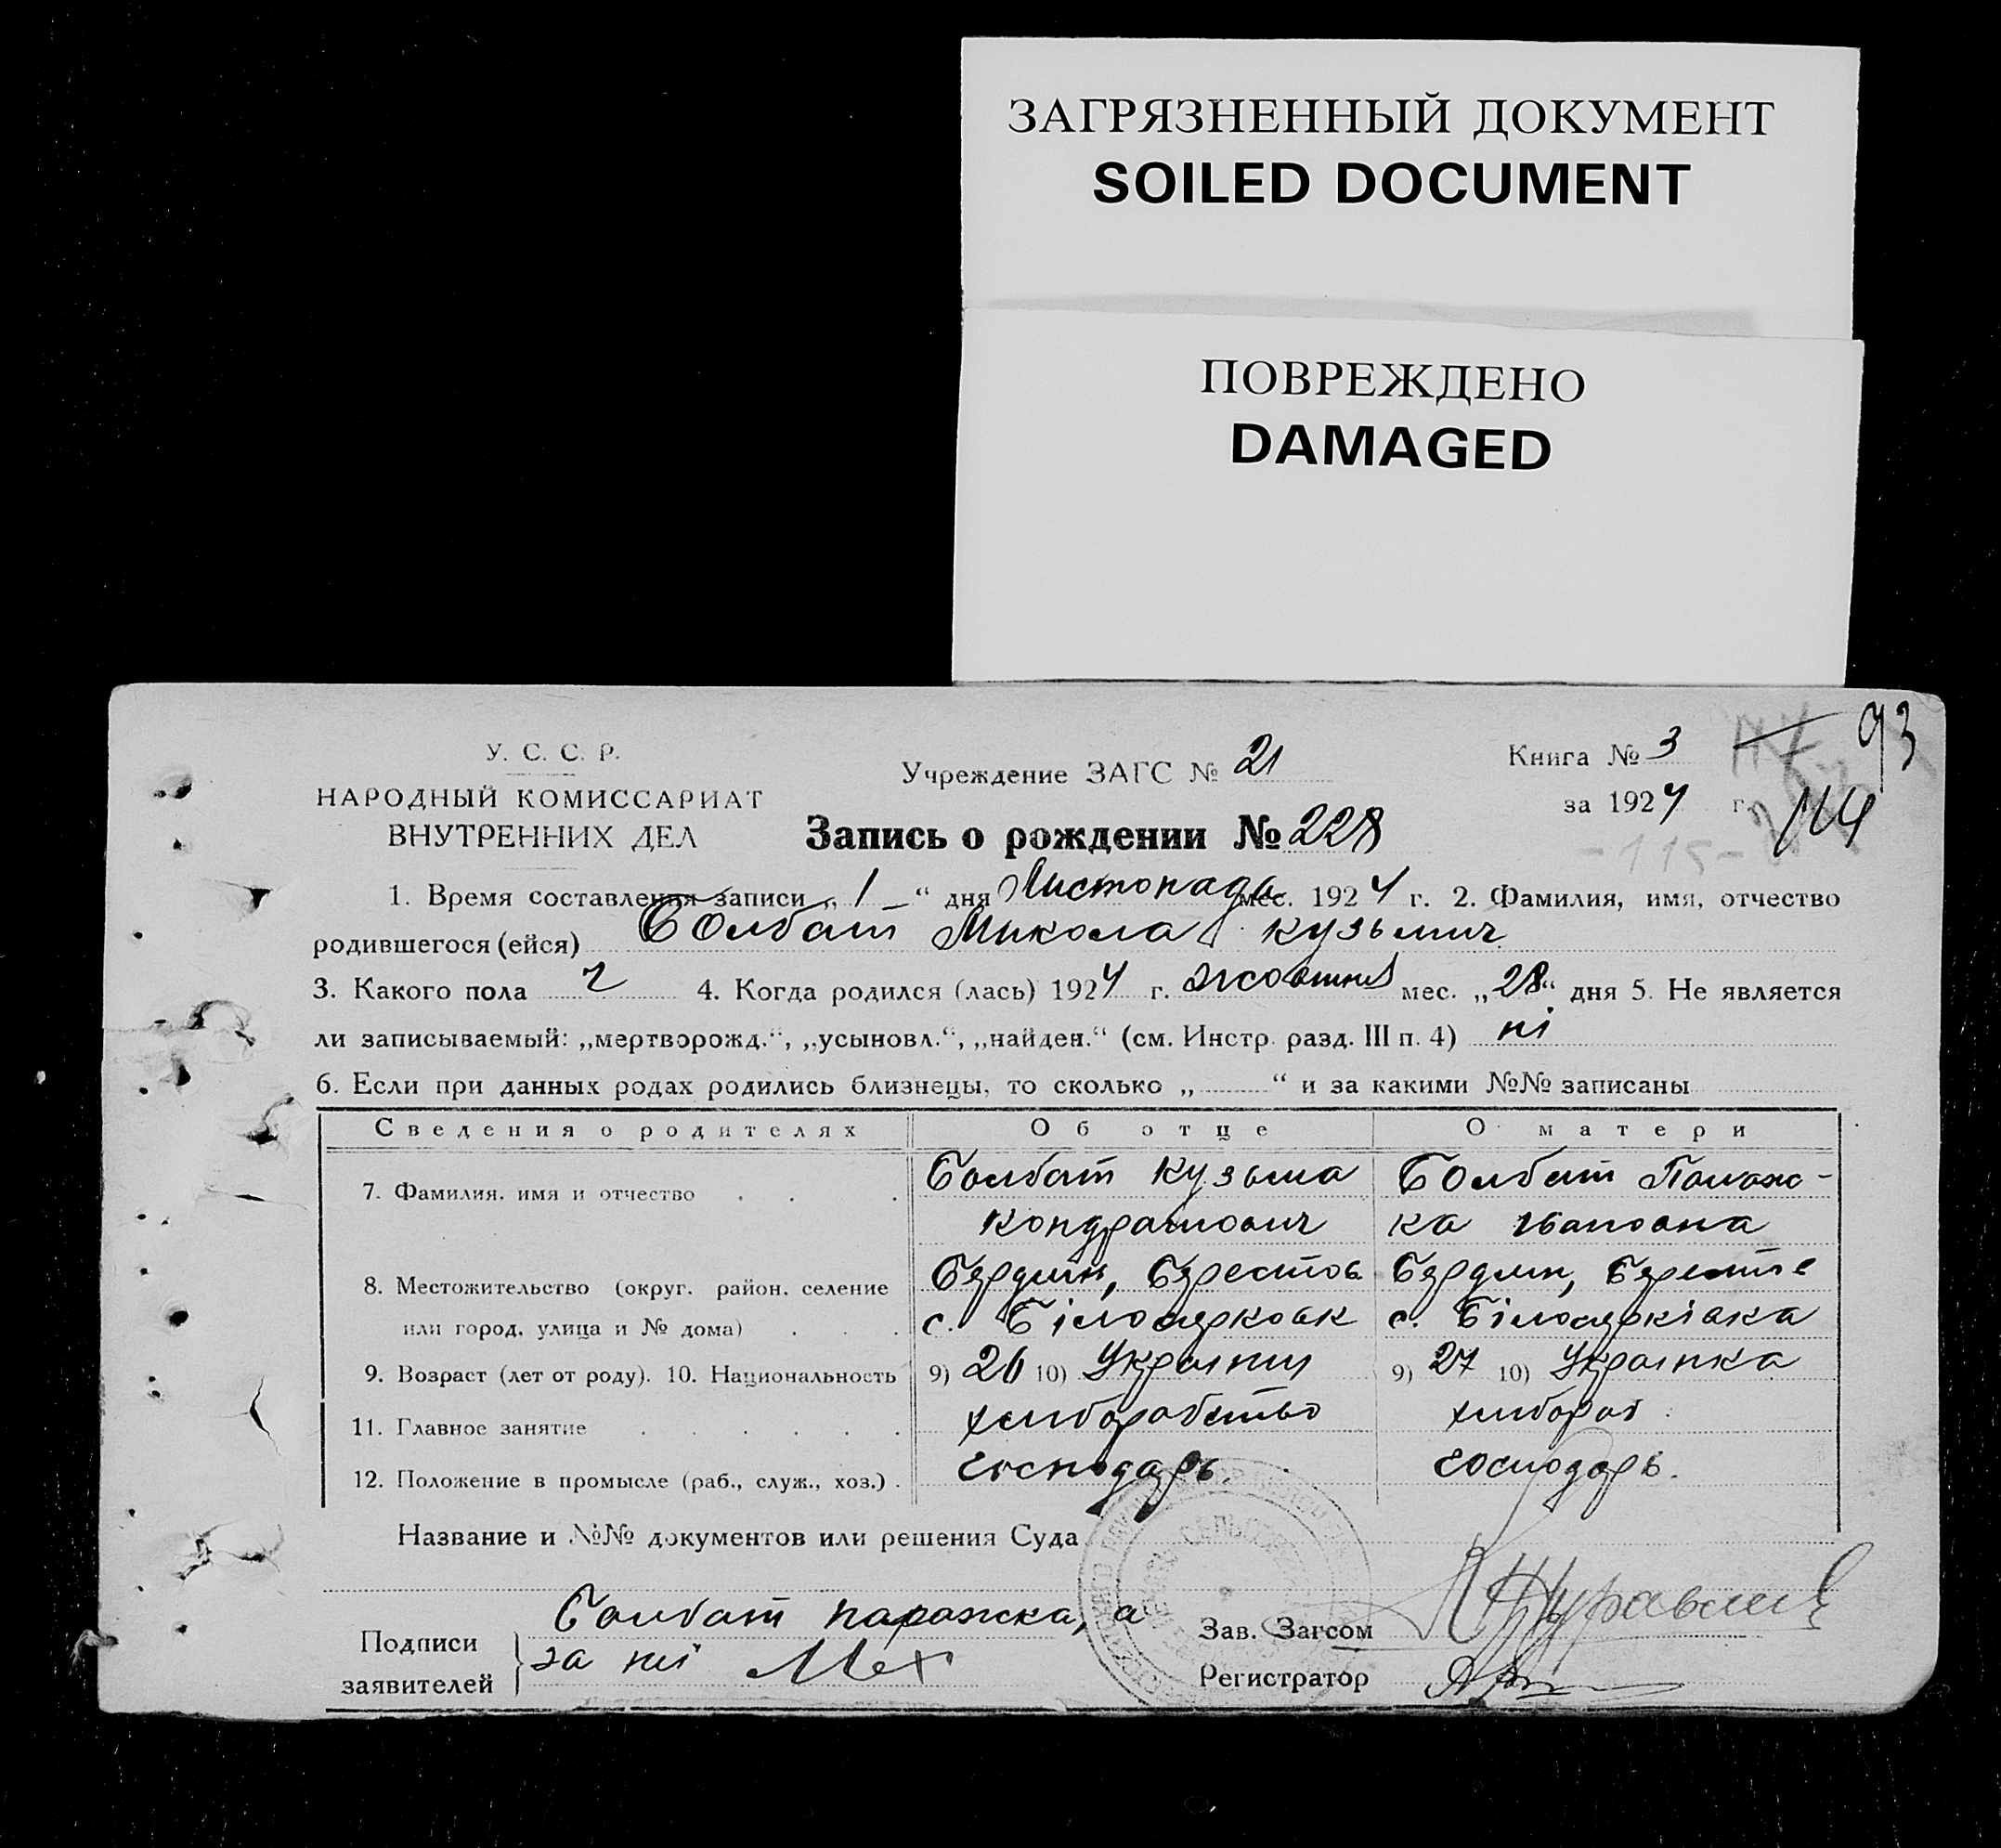 ЗАГРЯЗНЕННЫЙ ДОКУМЕНТ
SOILED DOCUMENT
ПОВРЕЖДЕНО
DAMAGED
93
У. С. С. Р.
НАРОДНЫЙ КОМИССАРИАТ
ВНУТРЕННИХ ДЕЛ
Учреждение ЗАГС № 21
Книга № 3
за 1924 г.
114
-115-
Запись о рождении № 228
1. Время составления записи „1“ дня Листопада мес. 1924 г. 2. Фамилия, имя, отчество
родившегося (ейся) Болбат Микола Кузьмич
3. Какого пола ч 4. Когда родился (лась) 1924 г. жовтня мес. „28“ дня 5. Не является
ли записываемый: „мертворожд.“, „усыновл.“, „найден.“ (см. Инстр. разд. III п. 4) ні
6. Если при данных родах родились близнецы, то сколько „ “ и за какими №№ записаны
Сведения о родителях Об отце О матери
7. Фамилия, имя и отчество Болбат Кузьма Болбат
Кондратович ка Івановна
8. Местожительство (округ, район, селение Бердян, Берестов Бердян, Берестів
или город, улица и № дома) с. Білоцерковк с. Білоцерківка
9. Возраст (лет от роду). 10. Национальность 9) 26 10) Україн 9) 27 10) Українка
11. Главное занятие хліборобство хлібороб
12. Положение в промысле (раб., служ., хоз.) господарь господарь.
Название и №№ документов или решения Суда
Подписи Болбат Паражка, а
заявителей за неї
Зав. Загсом
Регистратор